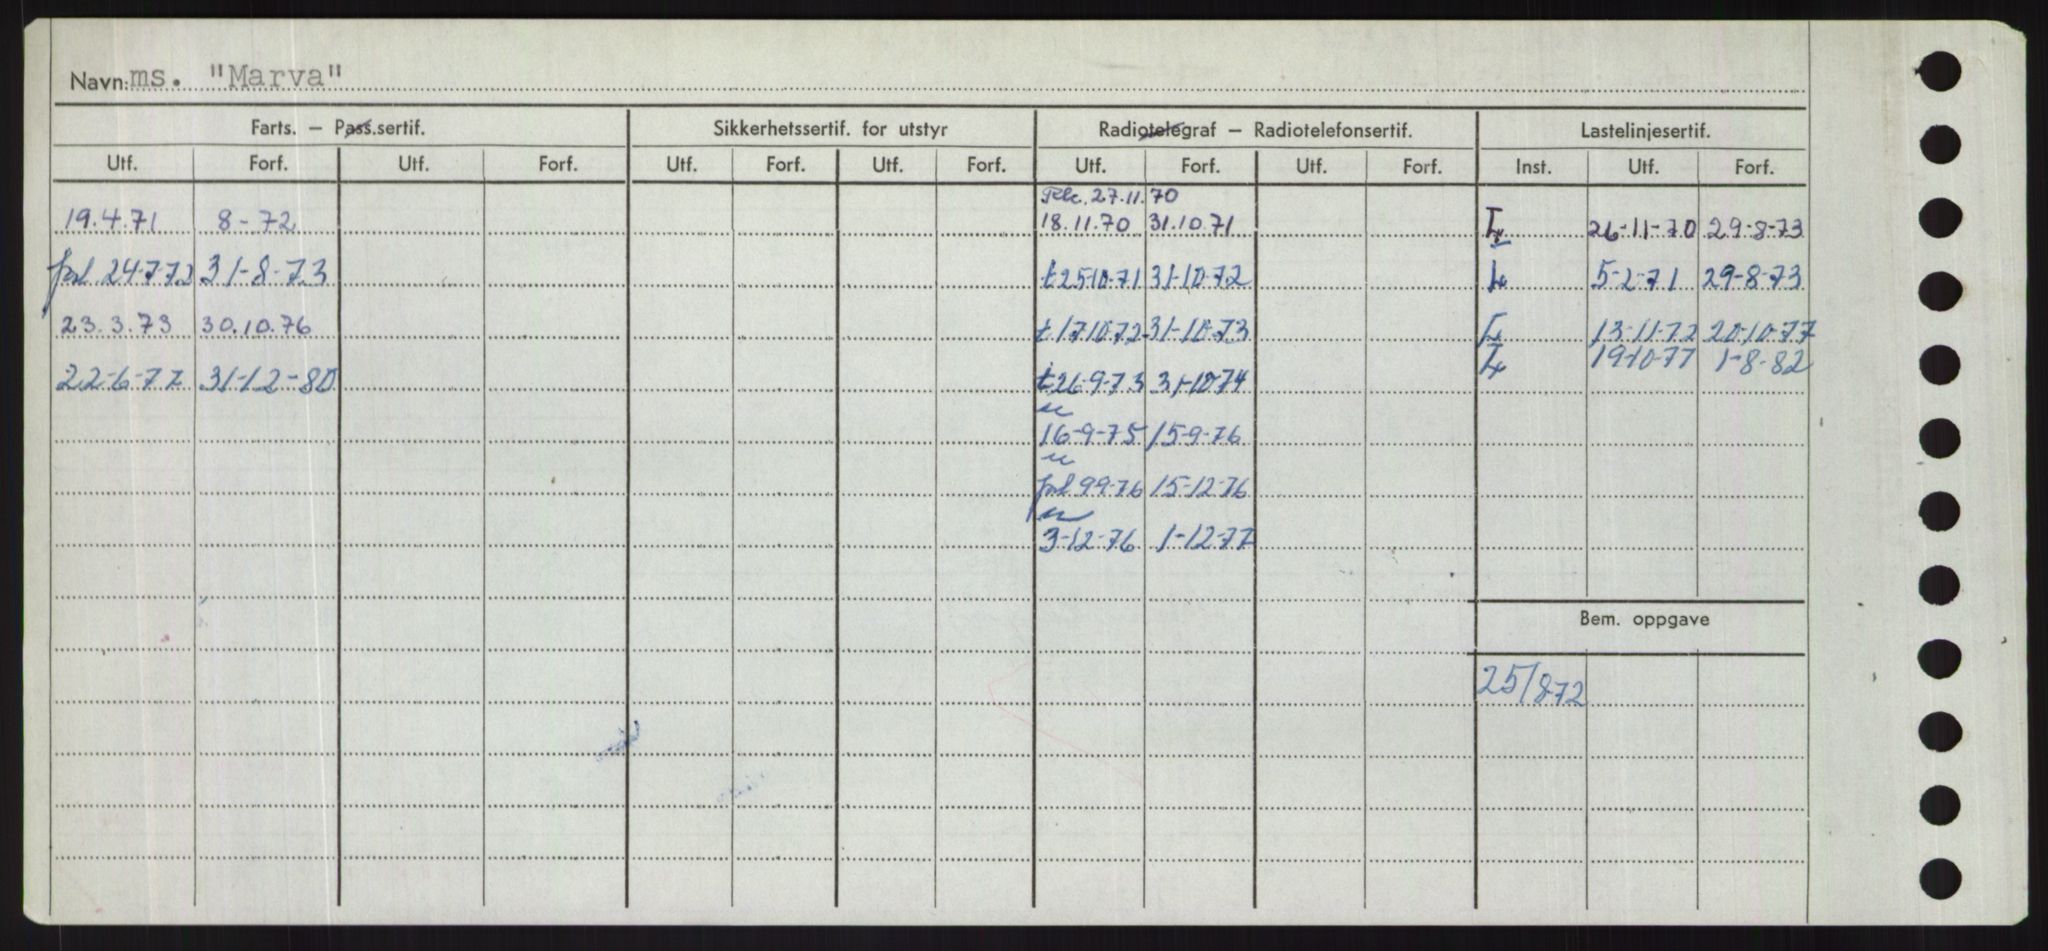 Navn: ms. "Marva"
Farts. — Pass.sertif. Sikkerhetssertif. for utstyr Radiotelegraf — Radiotelefonsertif. Lastelinjesertif.
Utf. Forf. Utf. Forf. Utf. Forf. Utf. Forf. Utf. Forf. Utf. Forf. Inst. Utf. Forf.
27.11.70
19.4.71 8-72 18.11.70 31.10.71 26-11-70 29-8-73
forl 24-7-72 31-8-73 t 25-10-71 31-10-72 5-2-71 29-8-73
23.3.73 30.10.76 t 17-10-72 31-10-73 13-11-72 20-10-77
19-10-77 1-8-82
22-6-77 31-12-80 t 26-9-73 31-10-74
16-9-75 15-9-76
forl 9-9-76 15-12-76
3-12-76 1-12-77
Bem. oppgave
25/8-72